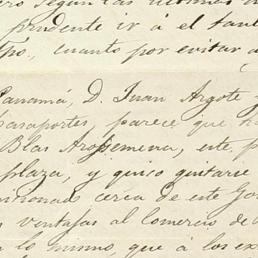 según las últimas
prudente ir á el
po, cuanto por evitar
Panamá, D. Juan Argote y
pasaportes, parece que
Blas Arosemena, este
plaza, y quiso quitarse
cerca de este Go
ventajas al comercio de
lo mismo, que á los ex